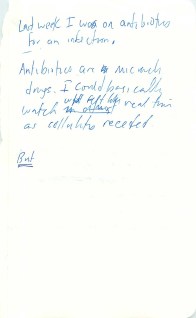 Last week I was on antibiotics
for an infection.
Antibiotics are such
drugs. I could basically
watch what felt like real time
as cellulitis receded
But